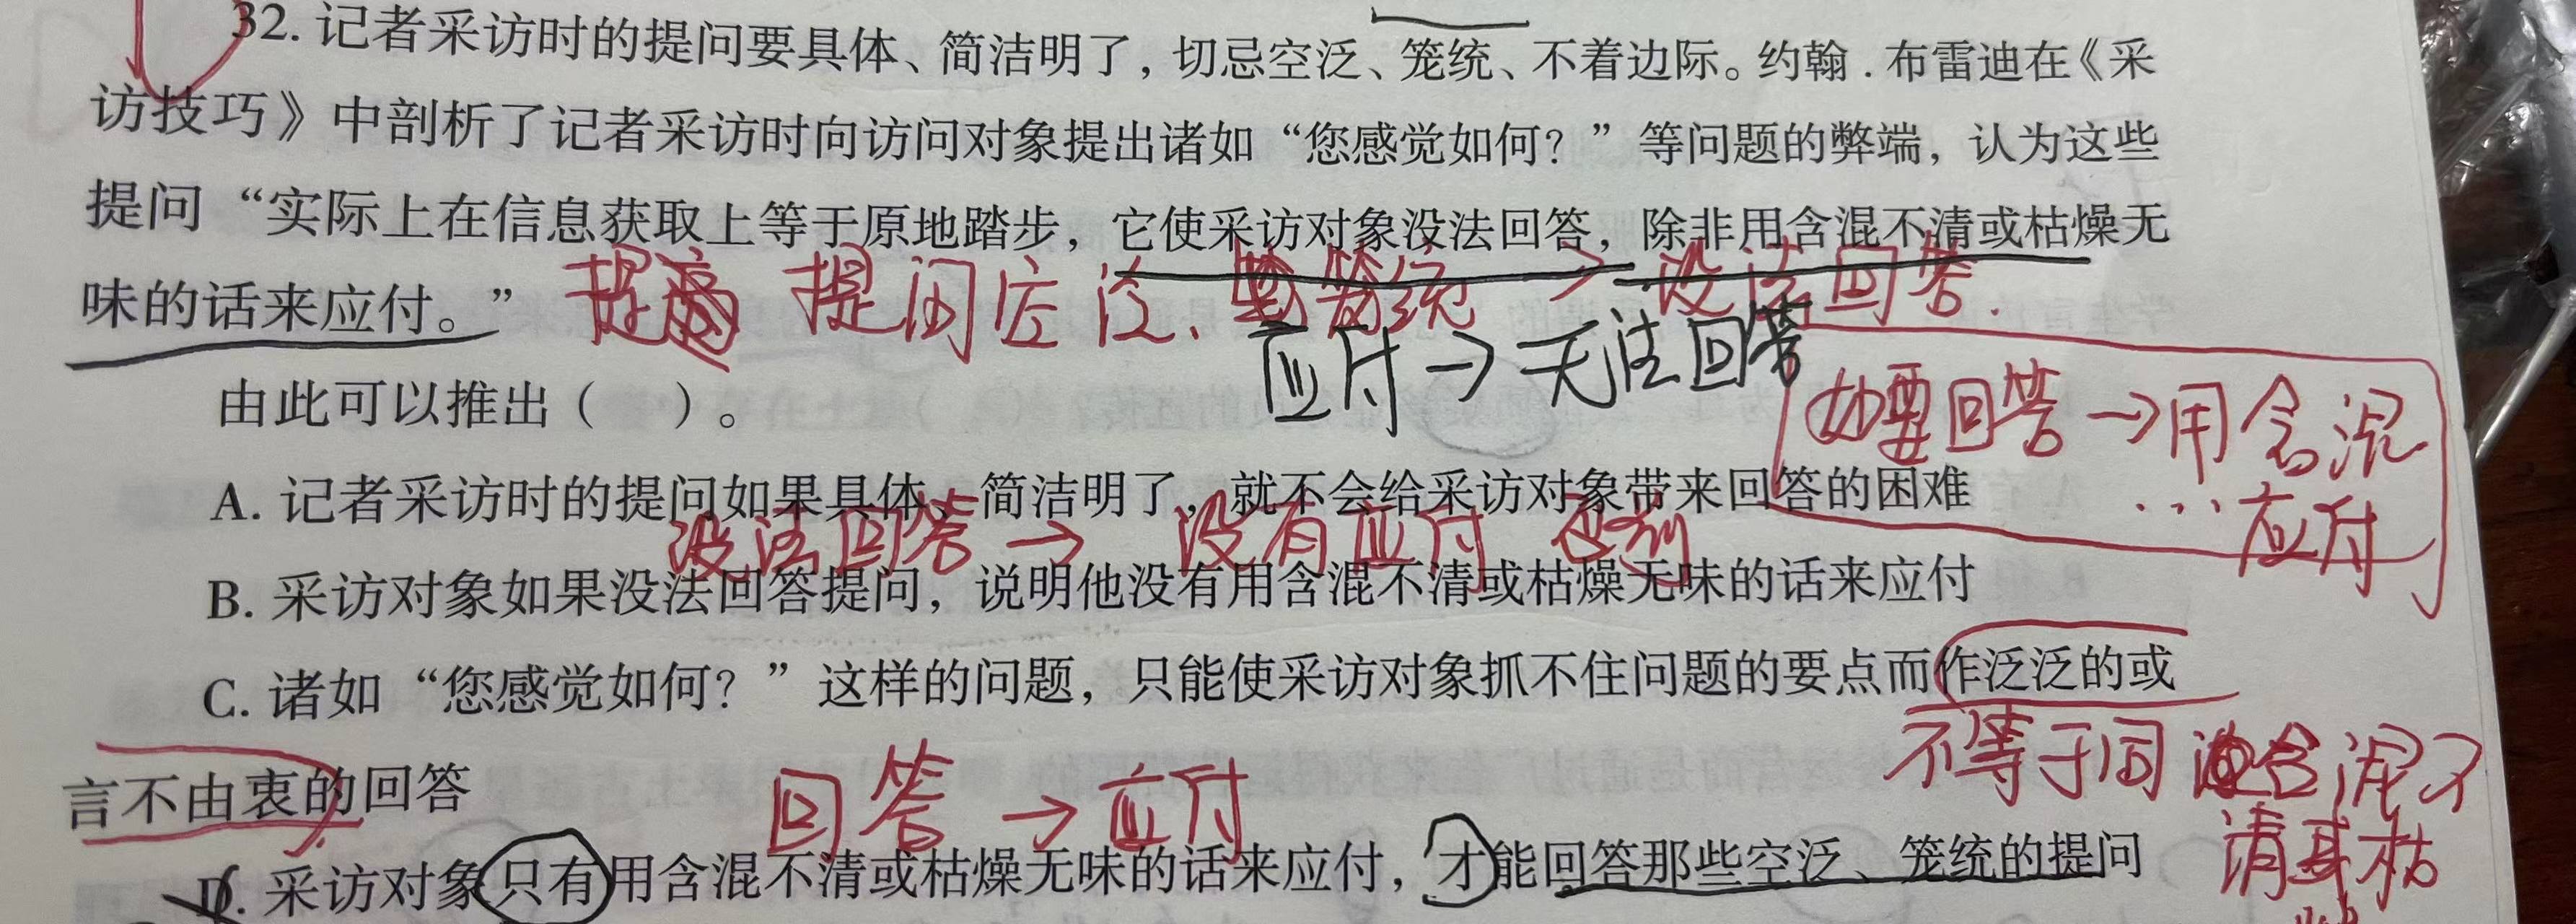 32. 记者采访时的提问要具体、简洁明了，切忌空泛、笼统、不着边际。约翰．布雷迪在《采
访技巧》中剖析了记者采访时向访问对象提出诸如“您感觉如何？”等问题的弊端，认为这些
提问“实际上在信息获取上等于原地踏步，它使采访对象没法回答，除非用含混不清或枯燥无
味的话来应付。”
提问 空泛、笼统 → 没法回答.
应付→无法回答
由此可以推出（ ）。
如要回答→用含混
…应付
A. 记者采访时的提问如果具体、简洁明了，就不会给采访对象带来回答的困难
没法回答→ 没有应付
B. 采访对象如果没法回答提问，说明他没有用含混不清或枯燥无味的话来应付
C. 诸如“您感觉如何？”这样的问题，只能使采访对象抓不住问题的要点而作泛泛的或
言不由衷的回答
不等于同 含混不
清或枯
回答→应付
D. 采访对象只有用含混不清或枯燥无味的话来应付，才能回答那些空泛、笼统的提问